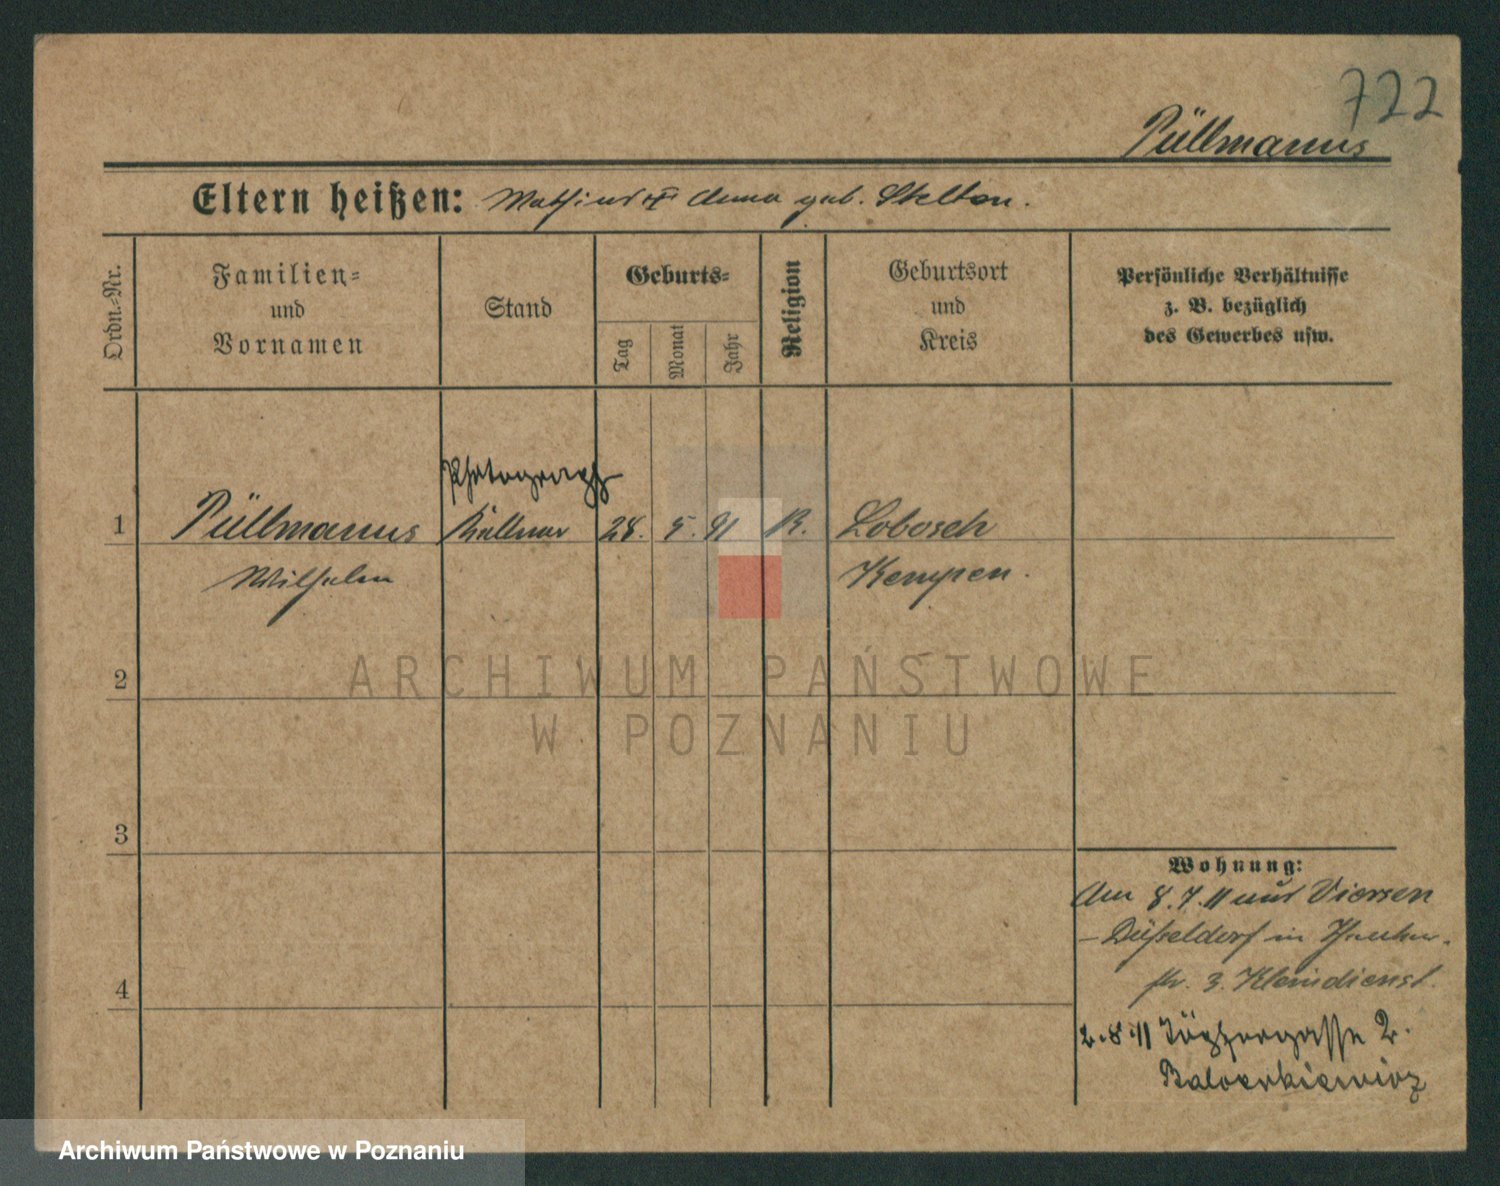 722
Püllmanns
Eltern heißen: Mathias + Anna geb. Stelten.
Ordn.-Nr.
Familien-
und
Vornamen
Stand
Geburts-
Tag
Monat
Jahr
Religion
Geburtsort
und
Kreis
Persönliche Verhältnisse
z. B. bezüglich
des Gewerbes usw.
Photograph
1 Püllmanns Kellner 28. 5. 91 K. Lobosch
Wilhelm Kempen.
2
3
4
Wohnung:
Am 8.7.11 aus Viersen
- Düsseldorf in
str. 3. Kleindienst.
2.8.11 2.
ARCHIWUM PAŃSTWOWE
W POZNANIU
Archiwum Państwowe w Poznaniu